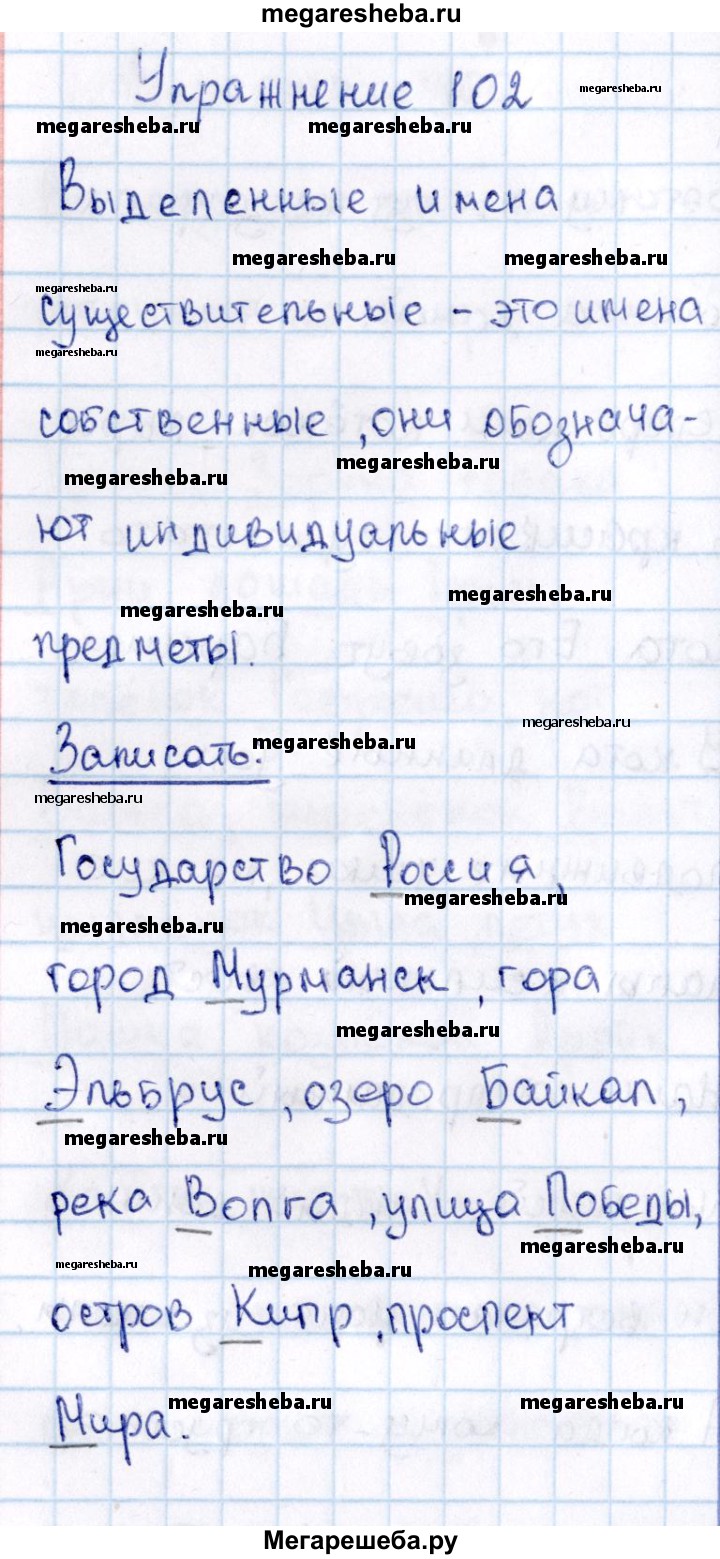 megaresheba.ru
Упражнение 102
megaresheba.ru
megaresheba.ru megaresheba.ru
Выделенные имена
megaresheba.ru megaresheba.ru
megaresheba.ru
существительные - это имена
megaresheba.ru
собственные, они обознача-
megaresheba.ru
megaresheba.ru
ют индивидуальные
megaresheba.ru
megaresheba.ru
предметы.
megaresheba.ru
Записать.
megaresheba.ru
megaresheba.ru
Государство Россия,
megaresheba.ru
megaresheba.ru
город Мурманск, гора
megaresheba.ru
Эльбрус, озеро Байкал,
megaresheba.ru
река Волга, улица Победы,
megaresheba.ru
megaresheba.ru megaresheba.ru
остров Кипр, проспект
megaresheba.ru megaresheba.ru
Мира.
Мегарешеба.ру